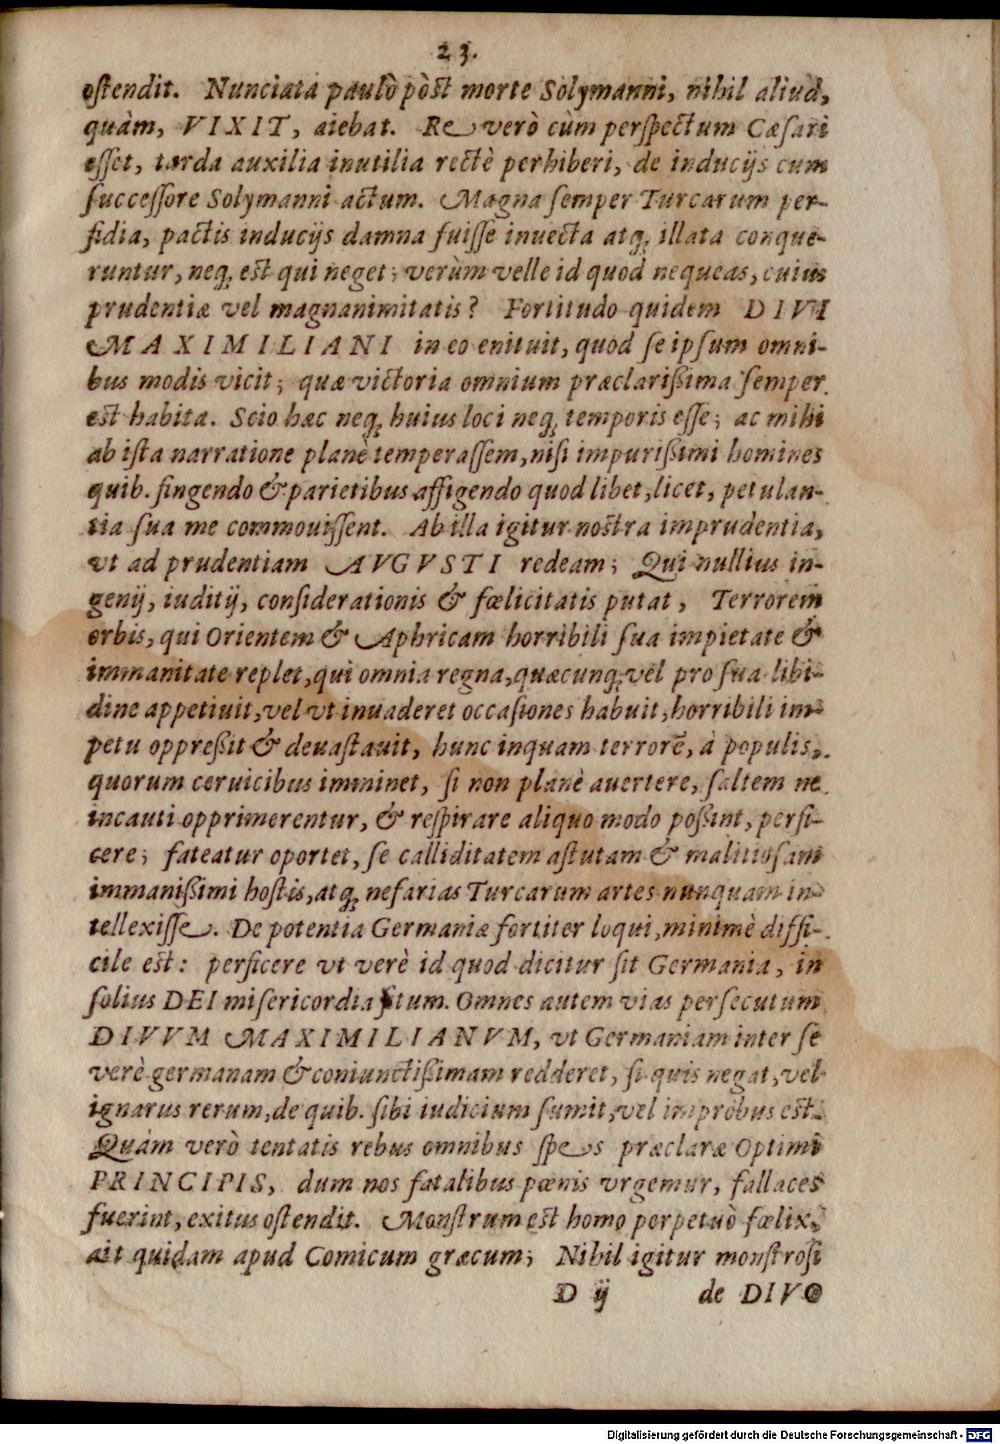 23.
ostendit. Nunciata paulò pòst morte Solymanni, nihil aliud,
quàm, VIXIT, aiebat. Re verò cùm perspectum Cæsari
esset, tarda auxilia inutilia rectè perhiberi, de inducijs cum
successore Solymanni actum. Magna semper Turcarum per-
fidia, pactis inducijs damna fuisse inuecta atq; illata conque-
runtur, neq; est qui neget; verùm velle id quod nequeas, cuius
prudentiæ vel magnanimitatis? Fortitudo quidem DIVI
MAXIMILIANI in eo enituit, quod seipsum omni-
bus modis vicit; quæ victoria omnium præclarißima semper
est habita. Scio hæc neq; huius loci neq; temporis esse; ac mihi
ab ista narratione planè temperassem, nisi impurißimi homines
quib. fingendo & parietibus affigendo quod libet, licet, petulan-
tia sua me commouissent. Ab illa igitur nostra imprudentia,
vt ad prudentiam AVGVSTI redeam; Qui nullius in-
genij, iuditij, considerationis & fœlicitatis putat, Terrorem
orbis, qui Orientem & Aphricam horribili sua impietate &
immanitate replet, qui omnia regna, quæcunq; vel pro sua libi-
dine appetiuit, vel vt inuaderet occasiones habuit, horribili im-
petu oppreßit & deuastauit, hunc inquam terrorē, à populis,
quorum ceruicibus imminet, si non planè auertere, saltem ne
incauti opprimerentur, & respirare aliquo modo poßint, perfi-
cere; fateatur oportet, se calliditatem astutam & malitiosam
immanißimi hostis, atq; nefarias Turcarum artes nunquam in-
tellexisse. De potentia Germaniæ fortiter loqui, minimè diffi-
cile est: perficere vt verè id quod dicitur sit Germania, in
solius DEI misericordia situm. Omnes autem vias persecutum
DIVVM MAXIMILIANVM, vt Germaniam inter se
verè germanam & coniunctißimam redderet, si quis negat, vel
ignarus rerum, de quib. sibi iudicium sumit, vel improbus est.
Quàm verò tentatis rebus omnibus spes præclaræ Optimi
PRINCIPIS, dum nos fatalibus pœnis vrgemur, fallaces
fuerint, exitus ostendit. Monstrum est homo perpetuò fœlix,
ait quidam apud Comicum græcum; Nihil igitur monstrosi
D ij de DIVO
Digitalisierung gefördert durch die Deutsche Forschungsgemeinschaft - DFG